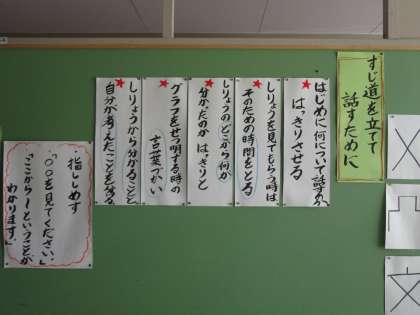 すじ道を立てて
話すために
はじめに何について話すか
はっきりさせる
しりょうを見てもらう時は
そのための時間をとる
しりょうのどこから何が
分かったのか はっきりと
グラフをせつ明する時の
言葉づかい
しりょうから分かることと
自分が考えたことを
指ししめす
「○○を見てください。」
「ここから～ということが
わかります。」